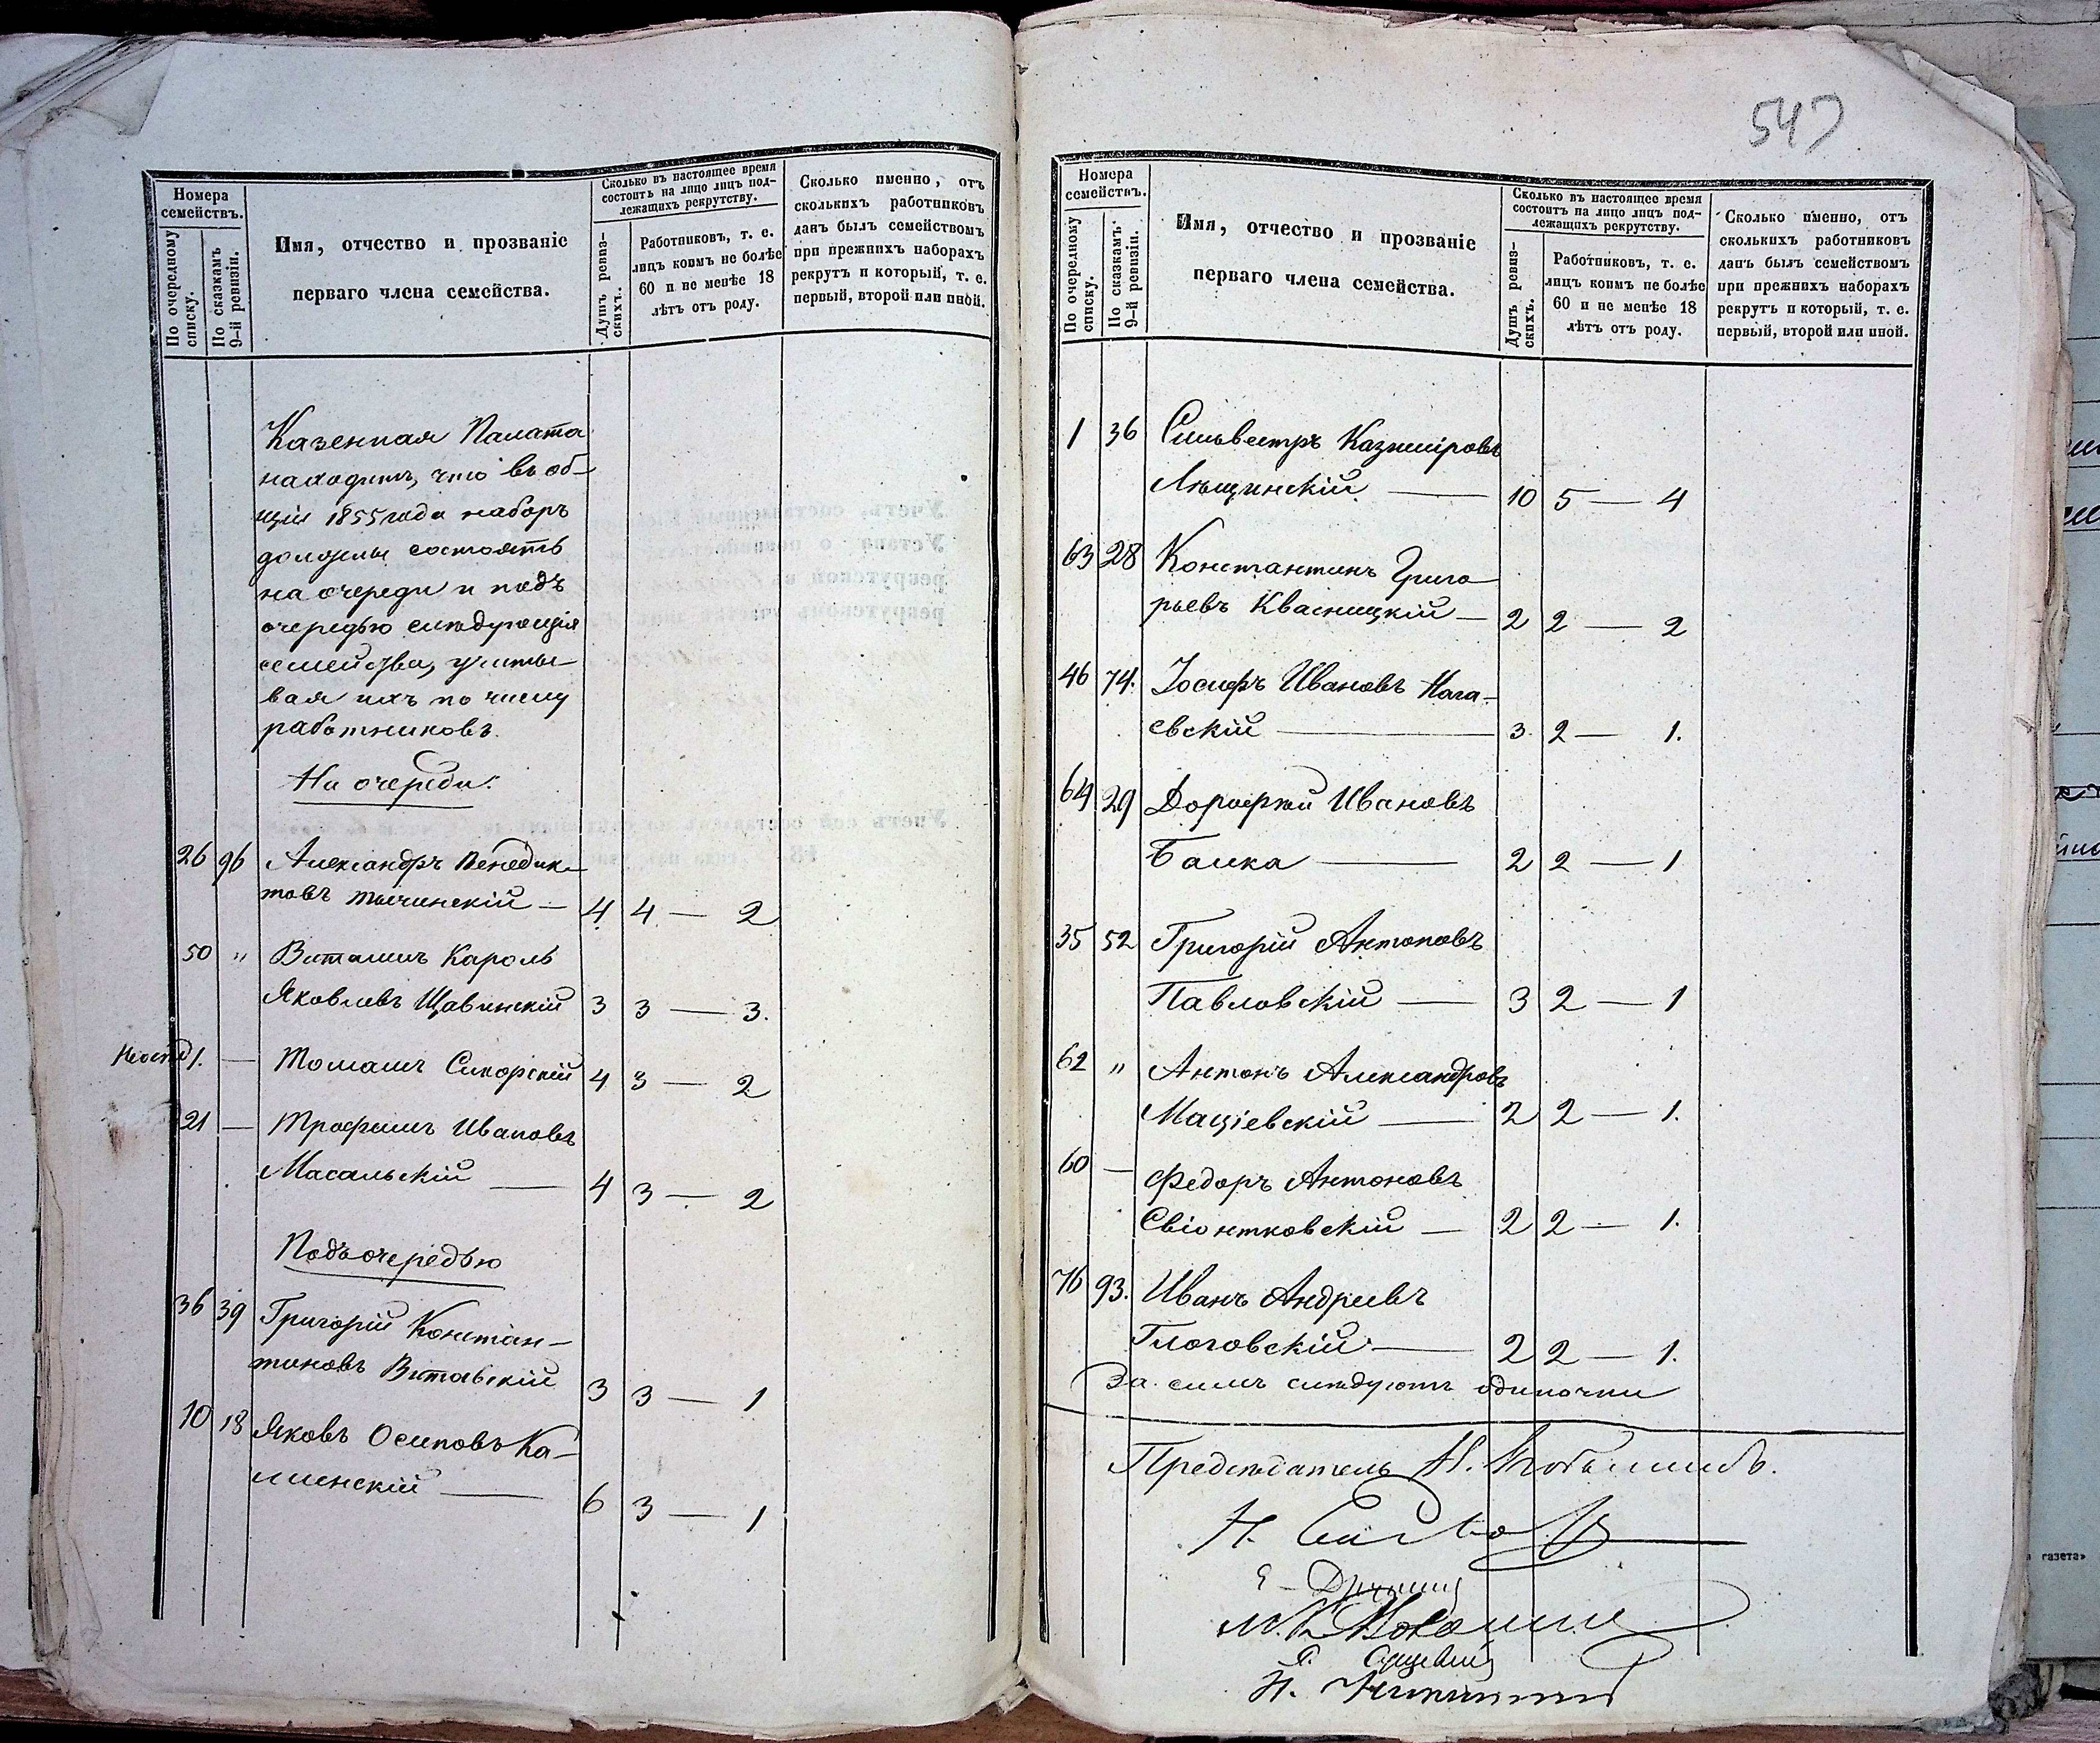 547
Номера
семействъ.
По очередному
списку.
По сказкамъ
9-й ревизіи.
Имя, отчество и прозваніе
перваго члена семейства.
Сколько въ настоящее время
состоитъ на лицо лицъ под-
лежащихъ рекрутству.
Душъ ревиз-
скихъ.
Работниковъ, т. е.
лицъ коимъ не болѣе
60 и не менѣе 18
лѣтъ отъ роду.
Сколько именно, отъ
сколькихъ работниковъ
данъ былъ семействомъ
при прежнихъ наборахъ
рекрутъ и который, т. е.
первый, второй или иной.
Казенная Палата
находитъ, что въ об-
щій 1855 года наборъ
должны состоять
на очереди и подъ
очередью слѣдующія
семейства, учиты-
вая ихъ по числу
работниковъ.
На очереди:
26 96 Александръ Венедик-
товъ Тычинскій — 4 4 — 2
50 " Витольдъ Кароль
Яковлевъ Щавинскій 3 3 — 3.
1. — Томашъ Сикорскій 4 3 — 2
21 — Трофимъ Ивановъ
Масальскій — 4 3 — 2
Подъ очередью
36 39 Григорій Констан-
тиновъ Витавскій 3 3 — 1
10 18 Яковъ Осиповъ Ка-
линскій — 6 3 — 1
Номера
семействъ.
По очередному
списку.
По сказкамъ
9-й ревизіи.
Имя, отчество и прозваніе
перваго члена семейства.
Сколько въ настоящее время
состоитъ на лицо лицъ под-
лежащихъ рекрутству.
Душъ ревиз-
скихъ.
Работниковъ, т. е.
лицъ коимъ не болѣе
60 и не менѣе 18
лѣтъ отъ роду.
Сколько именно, отъ
сколькихъ работниковъ
данъ былъ семействомъ
при прежнихъ наборахъ
рекрутъ и который, т. е.
первый, второй или иной.
1 36 Сильвестръ Казиміровъ
Лѣщинскій — 10 5 — 4
63 28 Константинъ Григо-
рьевъ Квасницкій — 2 2 — 2
46 74. Іосифъ Ивановъ Нага-
евскій — 3. 2 — 1.
64 29 Дорофтей Ивановъ
Балка — 2 2 — 1
35 52 Григорій Антоновъ
Павловскій — 3 2 — 1
62 " Антонъ Александровъ
Маціевскій — 2 2 — 1.
60 — Федоръ Антоновъ
Свіонтковскій — 2 2 — 1.
76 93. Иванъ Андреевъ
Глоговскій — 2 2 — 1.
За симъ слѣдуютъ одиночки
Предсѣдатель Н.
газета»